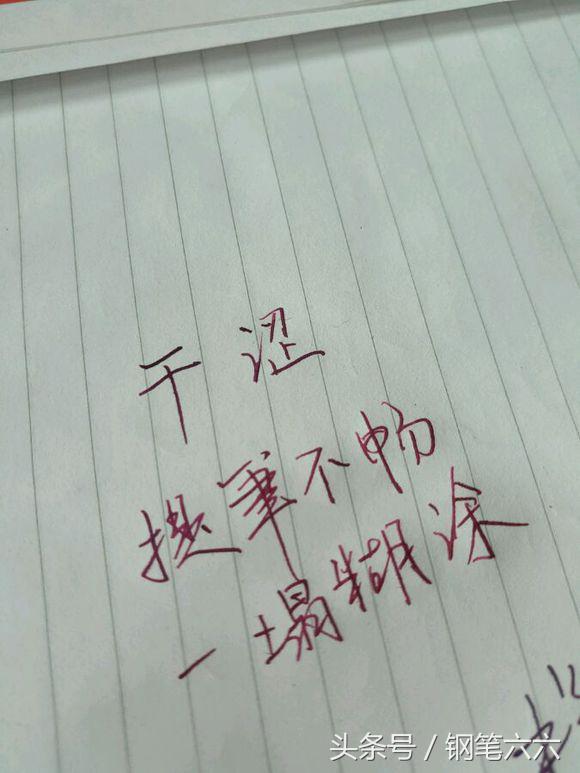 干涩
提笔不畅
一塌糊涂
头条号 / 钢笔六六